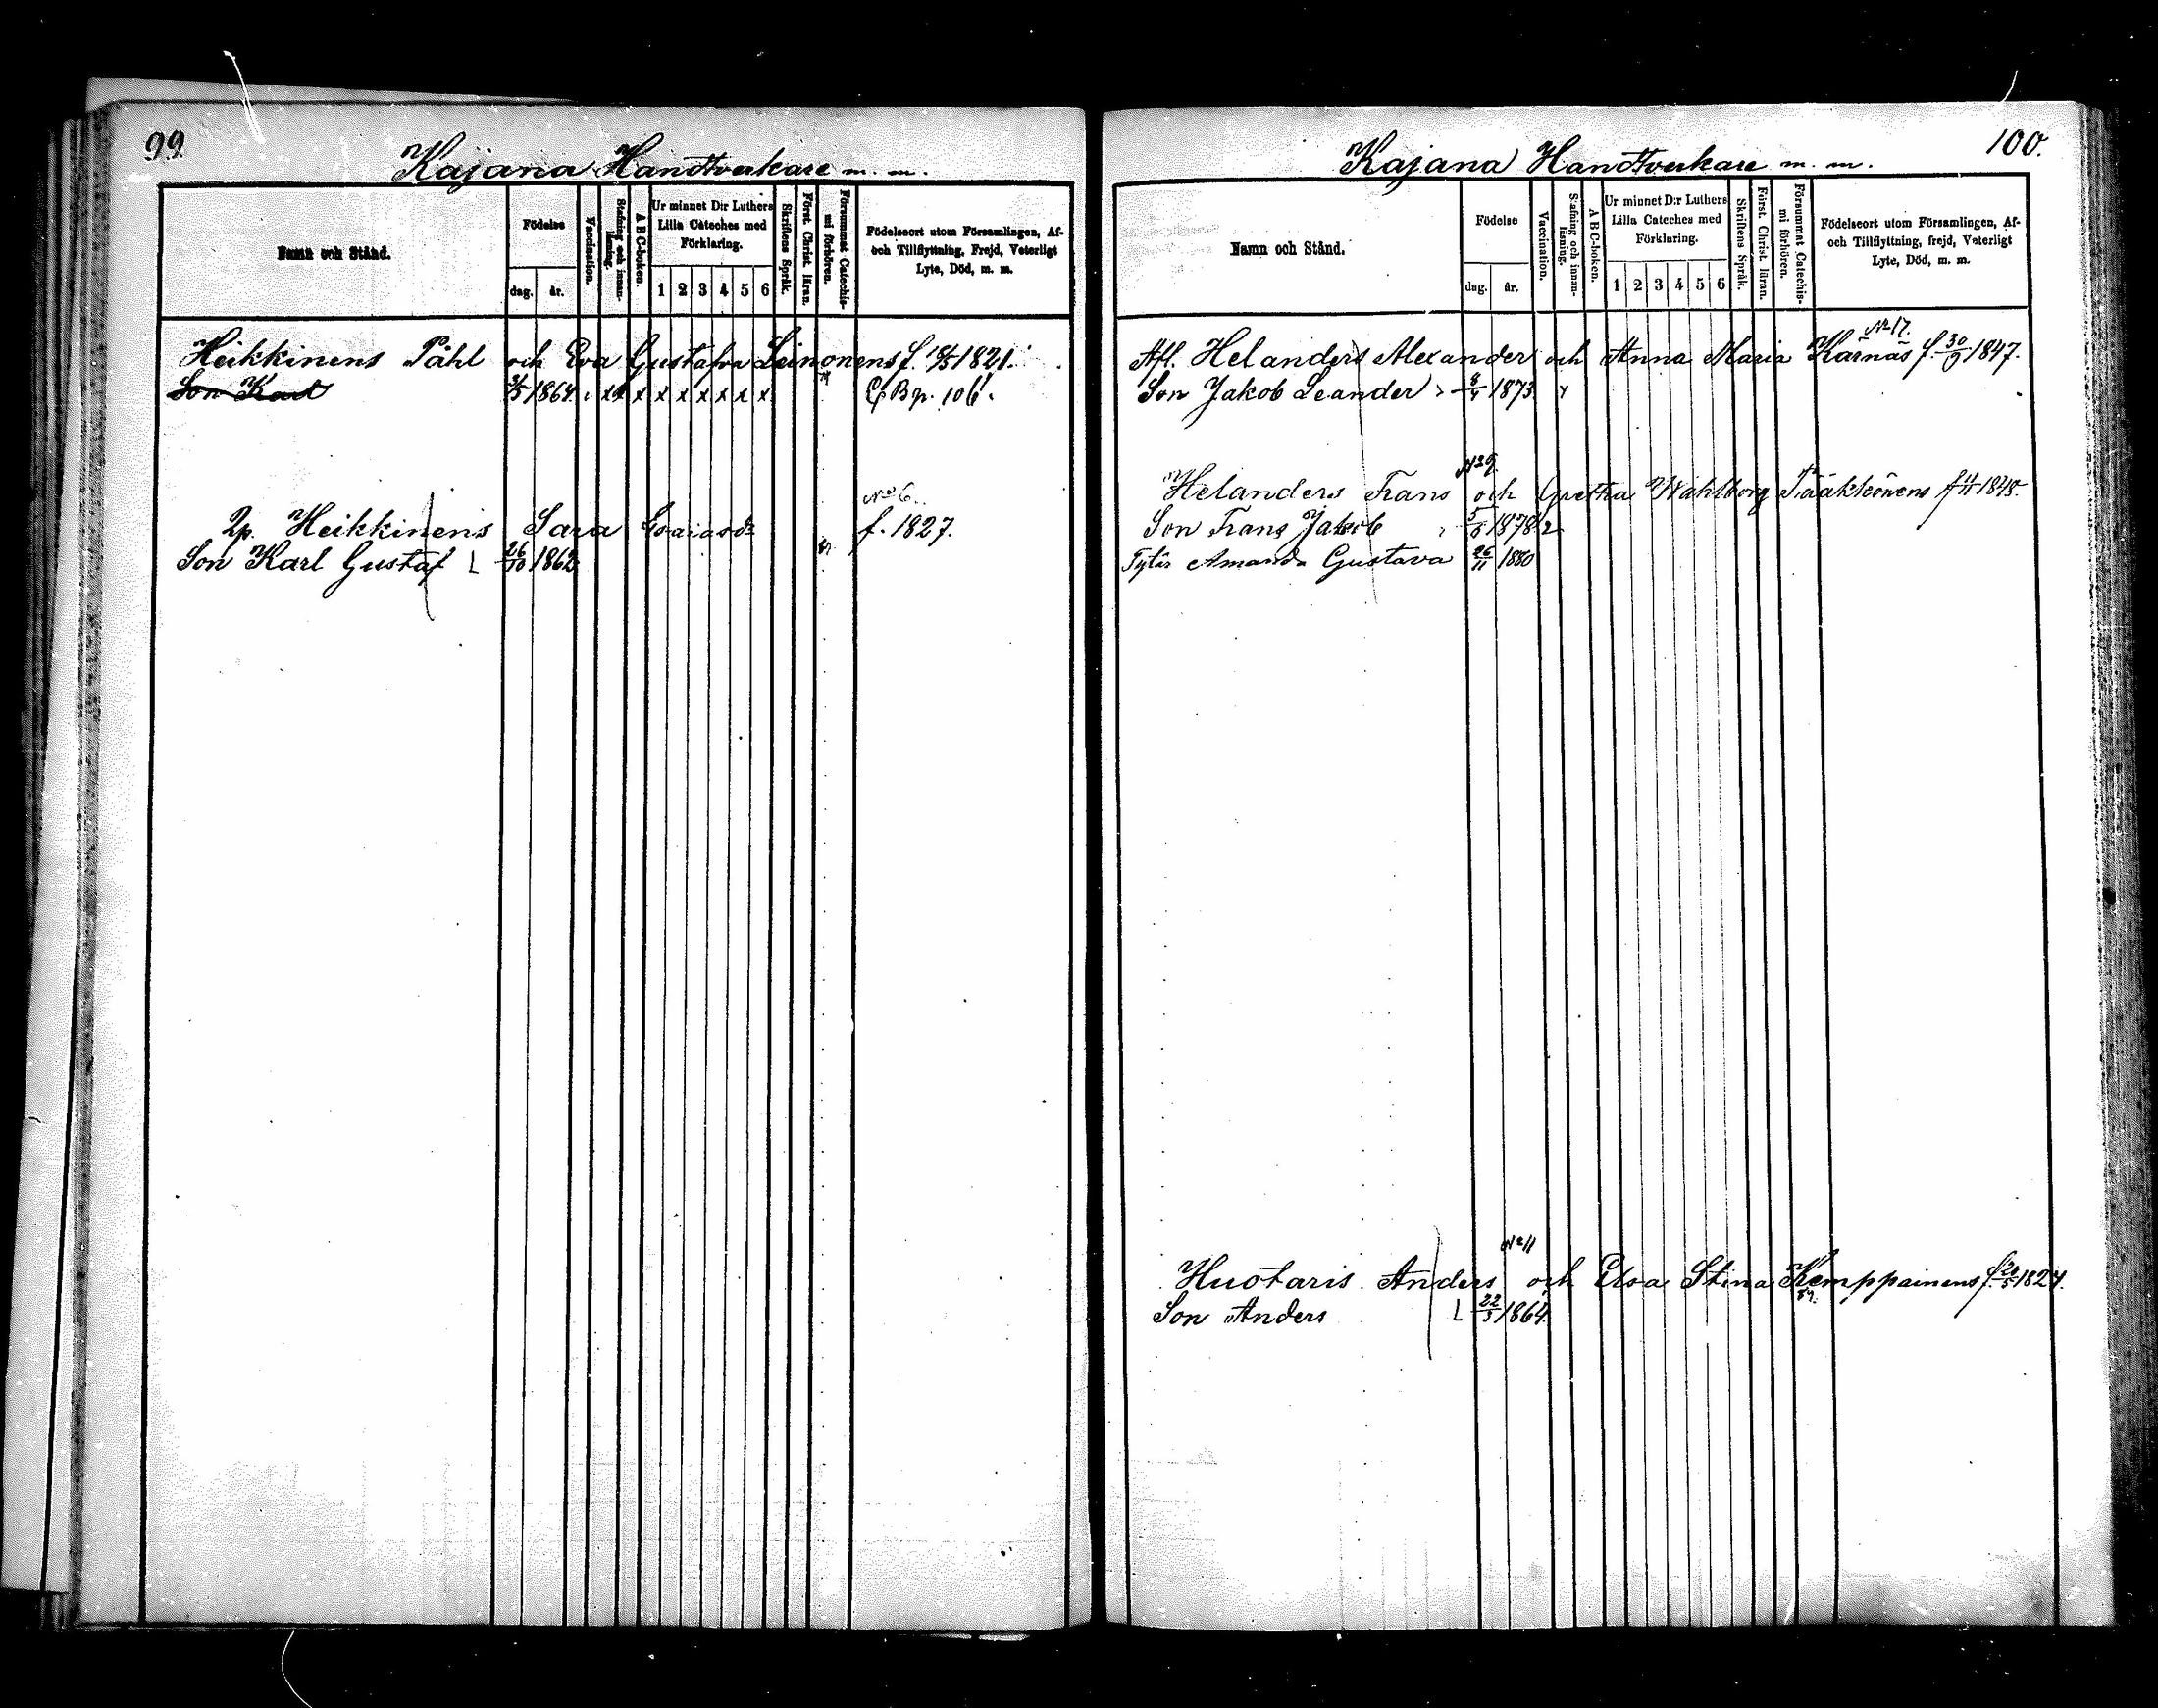 99.
Kajana Handtverkare m. m.
Namn och Stånd.
Födelse
dag.
år.
Vaccination.
Stafning och innan-
läsning.
ABC-boken.
Ur minnet D:r Luthers
Lilla Cateches med
Förklaring.
1 2 3 4 5 6
Skriftens Språk.
Först. Christ. läran.
Försummat Catechis-
mi förhören.
Födelseort utom Församlingen, Af-
och Tillflyttning, Frejd, Veterligt
Lyte, Död, m. m.
Heikkinens Påhl och Eva Gustafva Leinonens f. 1821.
Son Karl 1864 x x x x x x x x x Bp. 106.
No 6.
2p. Heikkinens Sara f. 1827.
Son Karl Gustaf 26/10 1862
100.
Kajana Handtverkare m. m.
Namn och Stånd.
Födelse
dag.
år.
Vaccination.
Stafning och innan-
läsning.
ABC-boken.
Ur minnet D:r Luthers
Lilla Cateches med
Förklaring.
1 2 3 4 5 6
Skriftens Språk.
Först. Christ. läran.
Försummat Catechis-
mi förhören.
Födelseort utom Församlingen, Af-
och Tillflyttning, frejd, Veterligt
Lyte, Död, m. m.
No 17.
Afl. Helanders Alexander och Anna Maria Kärnäs f. 30/9 1847.
Son Jakob Leander 1873
No 9.
Helanders Frans och Gretha Wahlborg Tääkköinens f.
Son Frans Jakob 1878
Tytär Amanda Gustava 26/11 1880
No 11
Huotaris Anders och Elsa Stina Kemppainens f. 1824.
Son Anders 22/5 1864